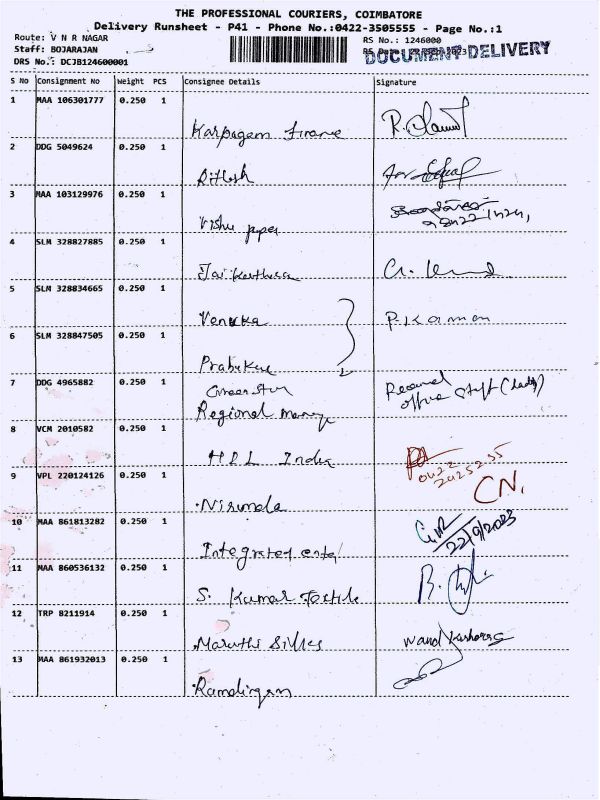 THE PROFESSIONAL COURIERS, COIMBATORE
Delivery Runsheet - P41 - Phone No.:0422-3505555 - Page No.:1
Route: V N R NAGAR RS No.: 1246000
Staff: BOJARAJAN DOCUMENT DELIVERY
DRS No.: DCJB124600001
S No Consignment No Weight PCS Consignee Details Signature
1 MAA 106301777 0.250 1
Karpagam Finance
2 DDG 5049624 0.250 1
Ritlesh
3 MAA 103129976 0.250 1
Vishu paper
4 SLM 328827885 0.250 1
5 SLM 328834665 0.250 1
Venuka
6 SLM 328847505 0.250 1
7 DDG 4965882 0.250 1
Green Star Received
Regional office staff (lady)
8 VCM 2010582 0.250 1
HDL India
0422
2025255
9 VPL 220124126 0.250 1 CN.
Nirmala
10 MAA 861813282 0.250 1
22/9/2023
Integrated
11 MAA 860536132 0.250 1
S. Kumar Textile
12 TRP 8211914 0.250 1
Maruthi Silks
13 MAA 861932013 0.250 1
Ramalingam